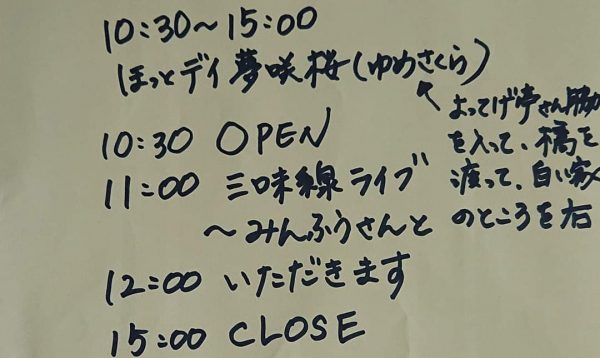 10:30〜15:00
ほっとデイ夢咲桜(ゆめさくら)
よってげ亭さん脇
を入って、橋を
渡って、白い家
のところを右
10:30 OPEN
11:00 三味線ライブ
〜みんふうさんと
12:00 いただきます
15:00 CLOSE